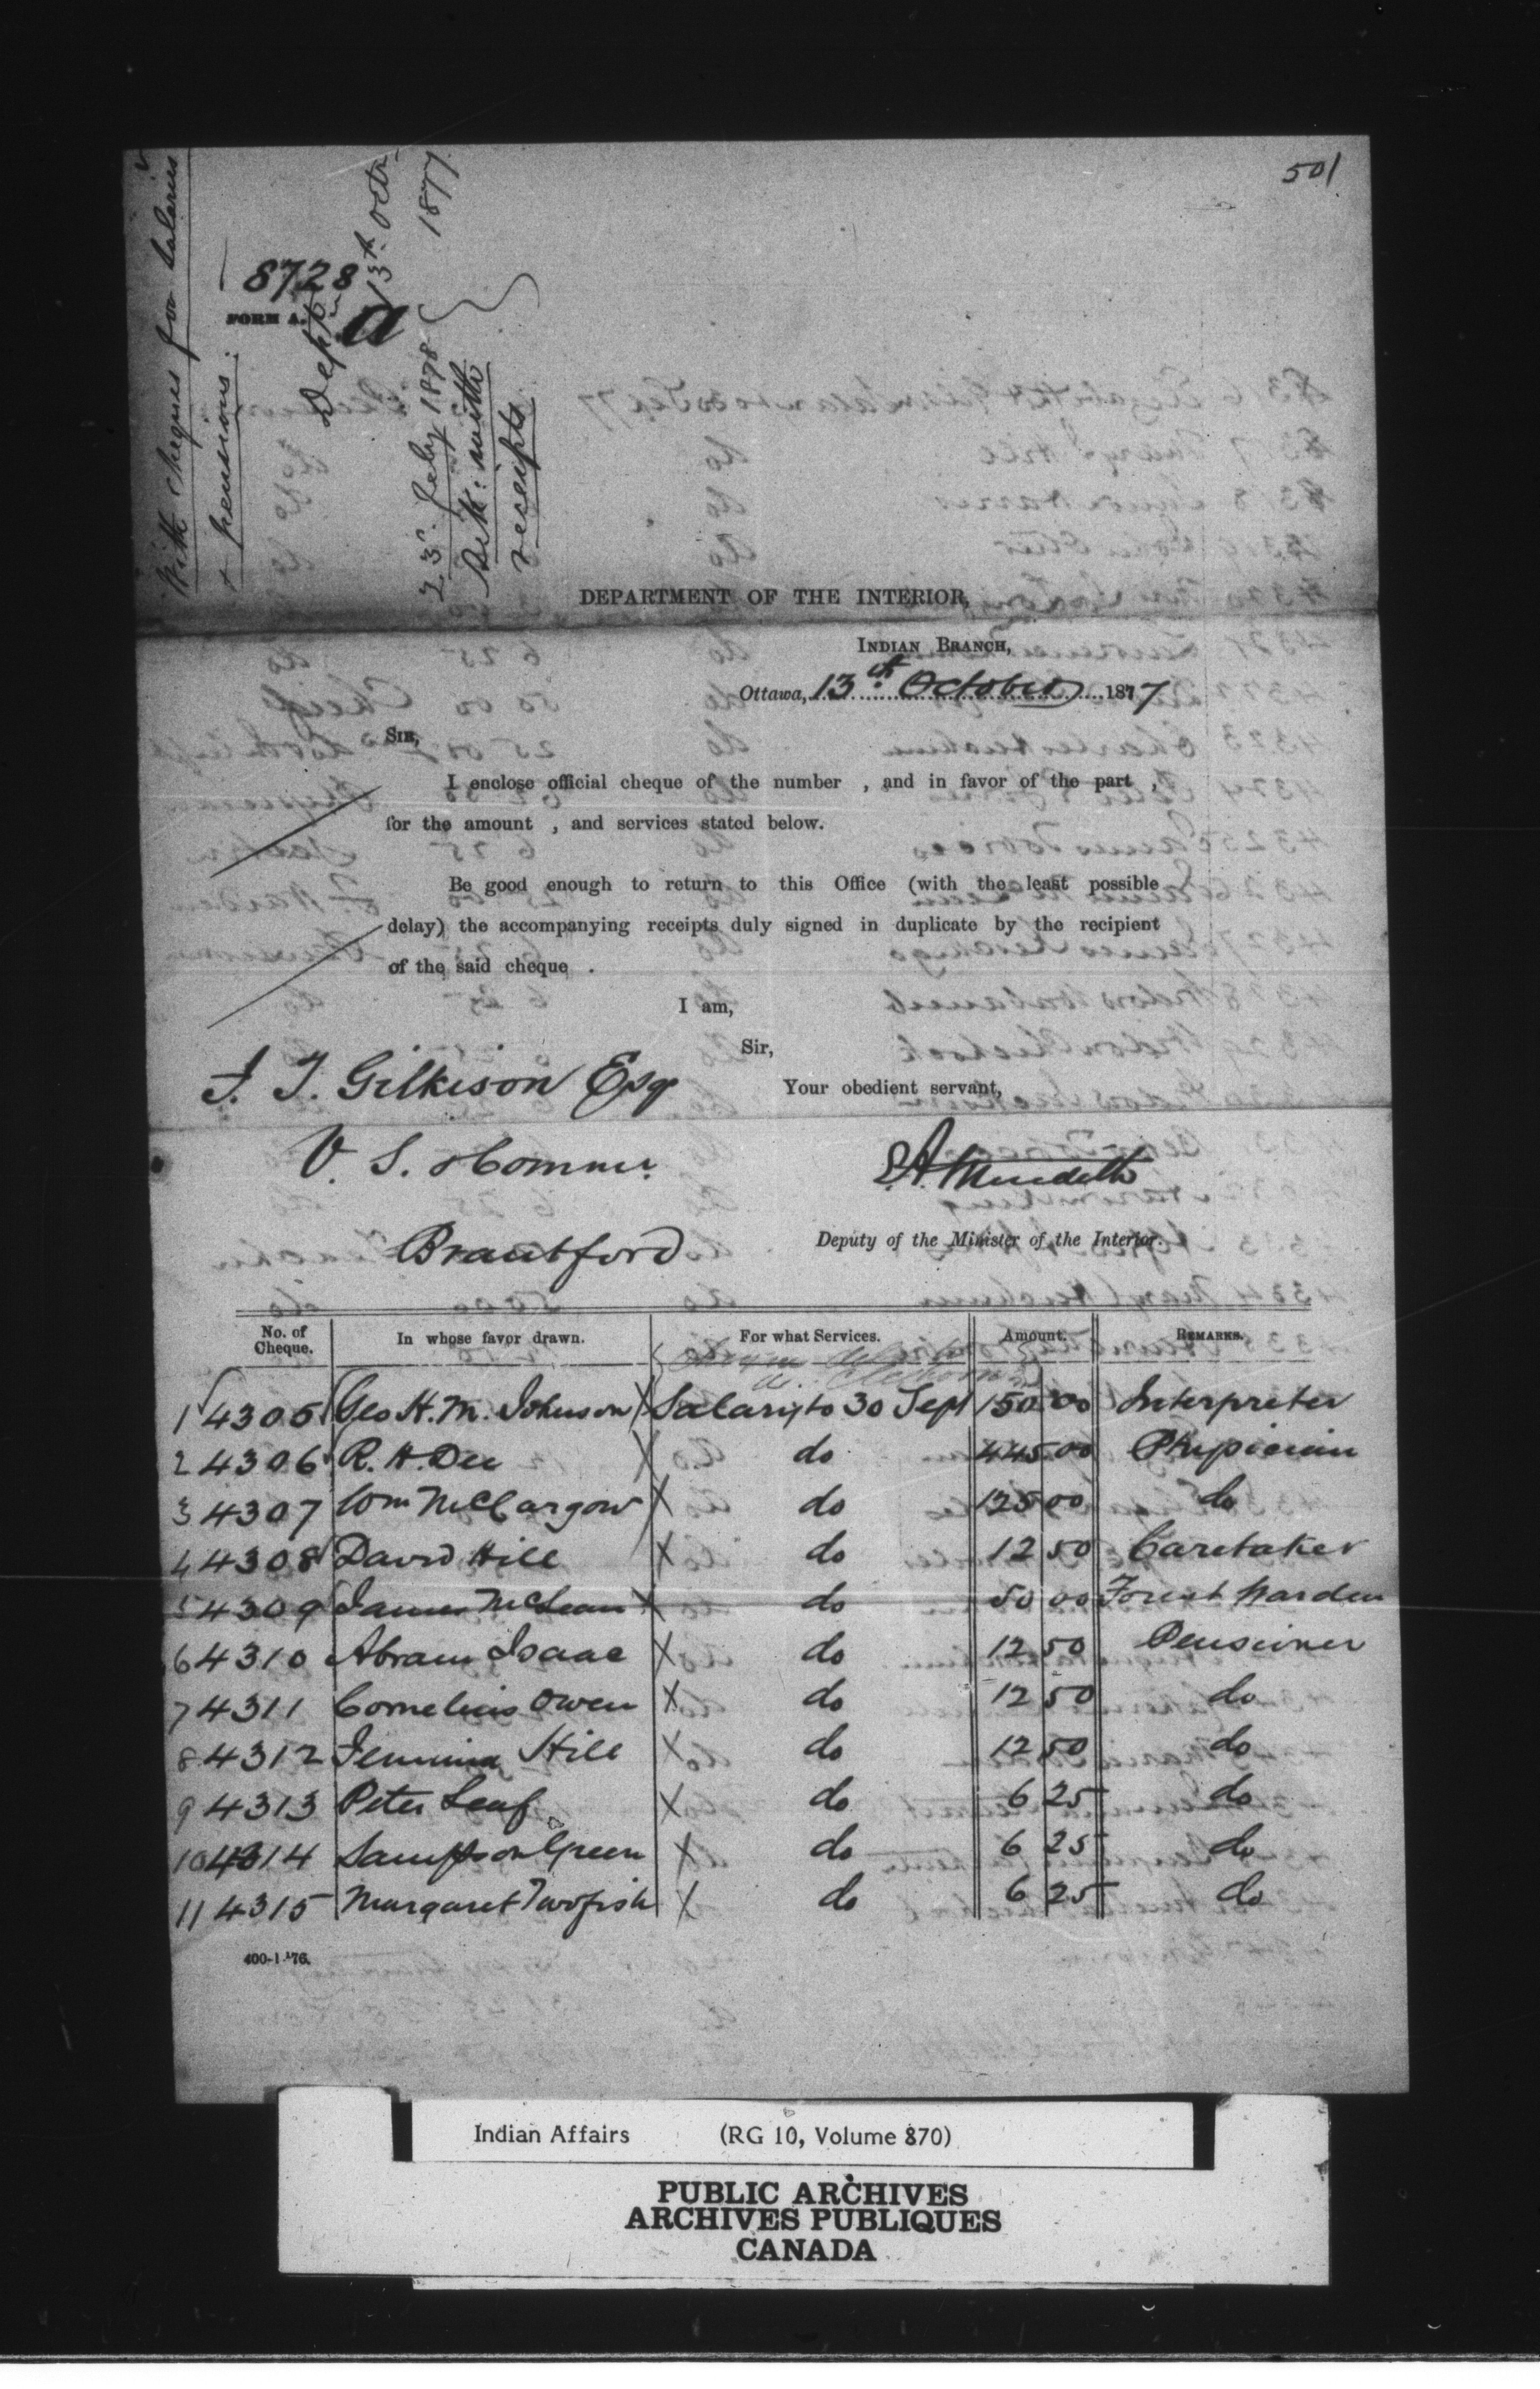 501
With cheques for Salaries
& pensions.
8728
FORM A.
a
Deptr
13th Octr
1877
23d Feby 1878
Ack: with
receipts
DEPARTMENT OF THE INTERIOR,
INDIAN BRANCH,
Ottawa, 13th October 1877
SIR,
I enclose official cheque of the number , and in favor of the part ,
for the amount , and services stated below.
Be good enough to return to this Office (with the least possible
delay) the accompanying receipts duly signed in duplicate by the recipient
of the said cheque .
I am,
Sir,
Your obedient servant,
J. T. Gilkison Esq
V. S. Commr.
Brantford
E.A. Meredith
Deputy of the Minister of the Interior.
No. of Cheque. In whose favor drawn. For what Services. Amount. REMARKS.
1 4305 Geo H. M. Johnson X Salary to 30 Sept 150 00 Interpreter
2 4306 R. H. Dee X do 445 00 Physician
3 4307 Wm McCargow X do 125 00 do
4 4308 David Hill X do 12 50 Caretaker
5 4309 James McLean X do 50 00 Forest Warden
6 4310 Abram Isaac X do 12 50 Pensioner
7 4311 Cornelius Owen X do 12 50 do
8 4312 Jemima Hill X do 12 50 do
9 4313 Peter Leaf X do 6 25 do
10 4314 Sampson Green X do 6 25 do
11 4315 Margaret Twofish X do 6 25 do
400-1-'76.
Indian Affairs (RG 10, Volume 870)
PUBLIC ARCHIVES
ARCHIVES PUBLIQUES
CANADA